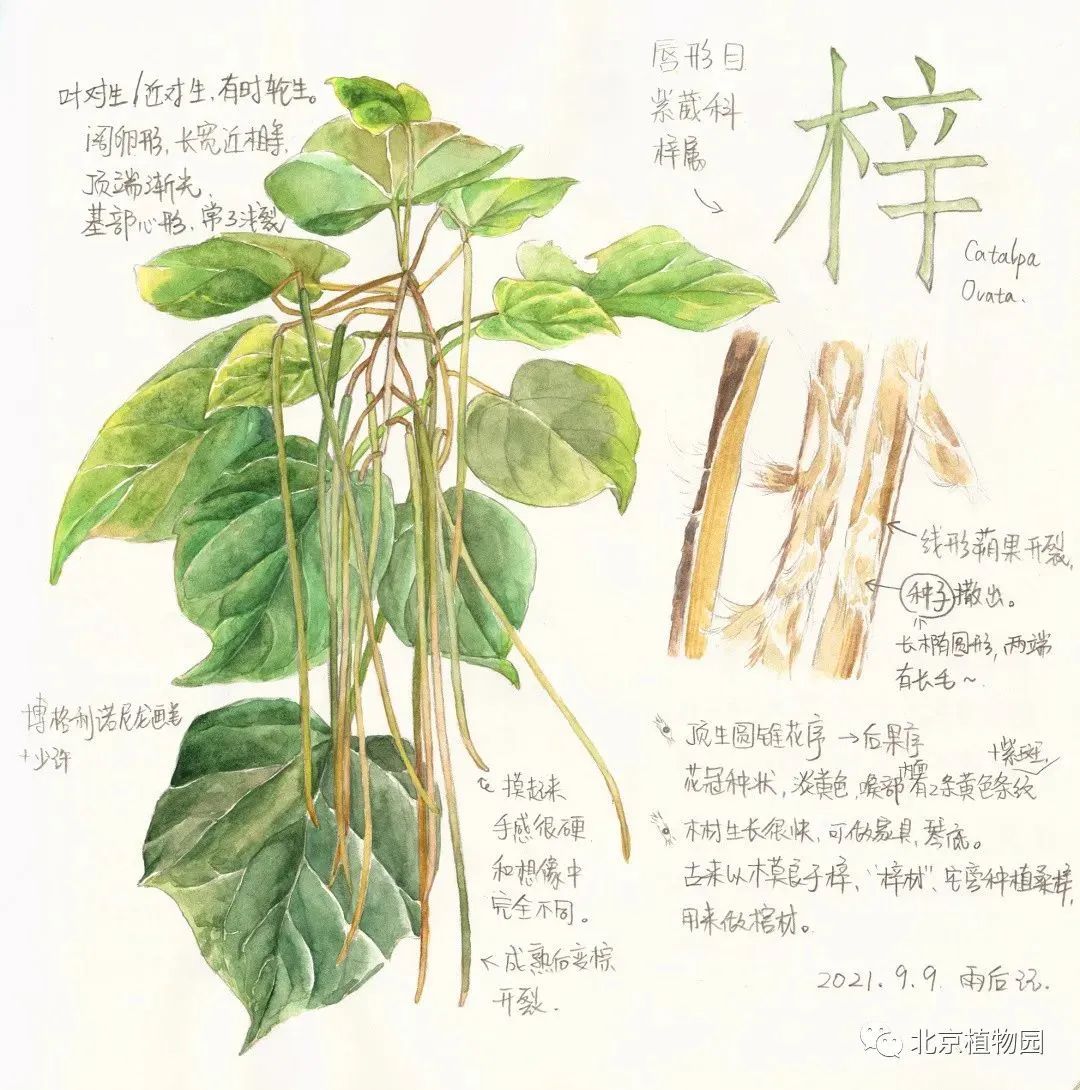 叶对生/近对生,有时轮生。
阔卵形,长宽近相等,
顶端渐尖,
基部心形,常3浅裂
唇形目
紫葳科
梓属
梓
Catalpa
Ovata.
线形蒴果开裂,
种子撒出。
长椭圆形,两端
有长毛~
博格利诺尼龙画笔
+少许
摸起来
手感很硬
和想像中
完全不同。
成熟后变棕
开裂.
顶生圆锥花序→后果序
+紫斑,
花冠种状,淡黄色,喉部内面有2条黄色条纹
木材生长很快,可做家具,琴底。
古来以木莫良于梓,“梓材”、宅旁种植桑梓,
用来做棺材。
2021.9.9 雨后记.
北京植物园